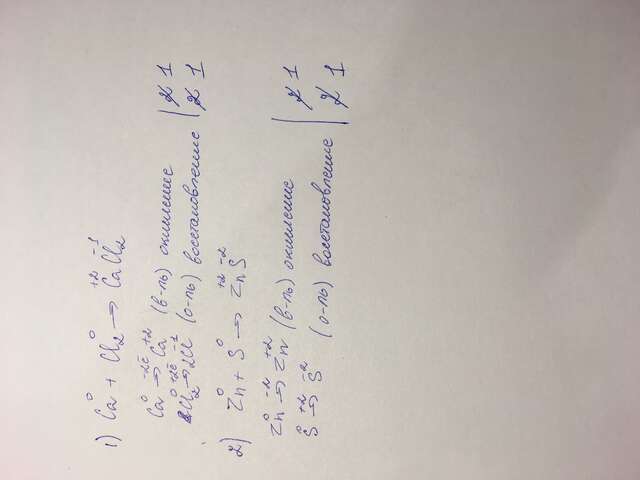 1) Ca⁰ + Cl₂⁰ → Ca⁺²Cl₂⁻¹
Ca⁰ -2ē→ Ca⁺² (в-ль) окисление | 2 1
Cl₂⁰ +2ē→ 2Cl⁻¹ (о-ль) восстановление | 2 1
2) Zn⁰ + S⁰ → Zn⁺²S⁻²
Zn⁰ -2→ Zn⁺² (в-ль) окисление | 2 1
S⁰ +2→ S⁻² (о-ль) восстановление | 2 1